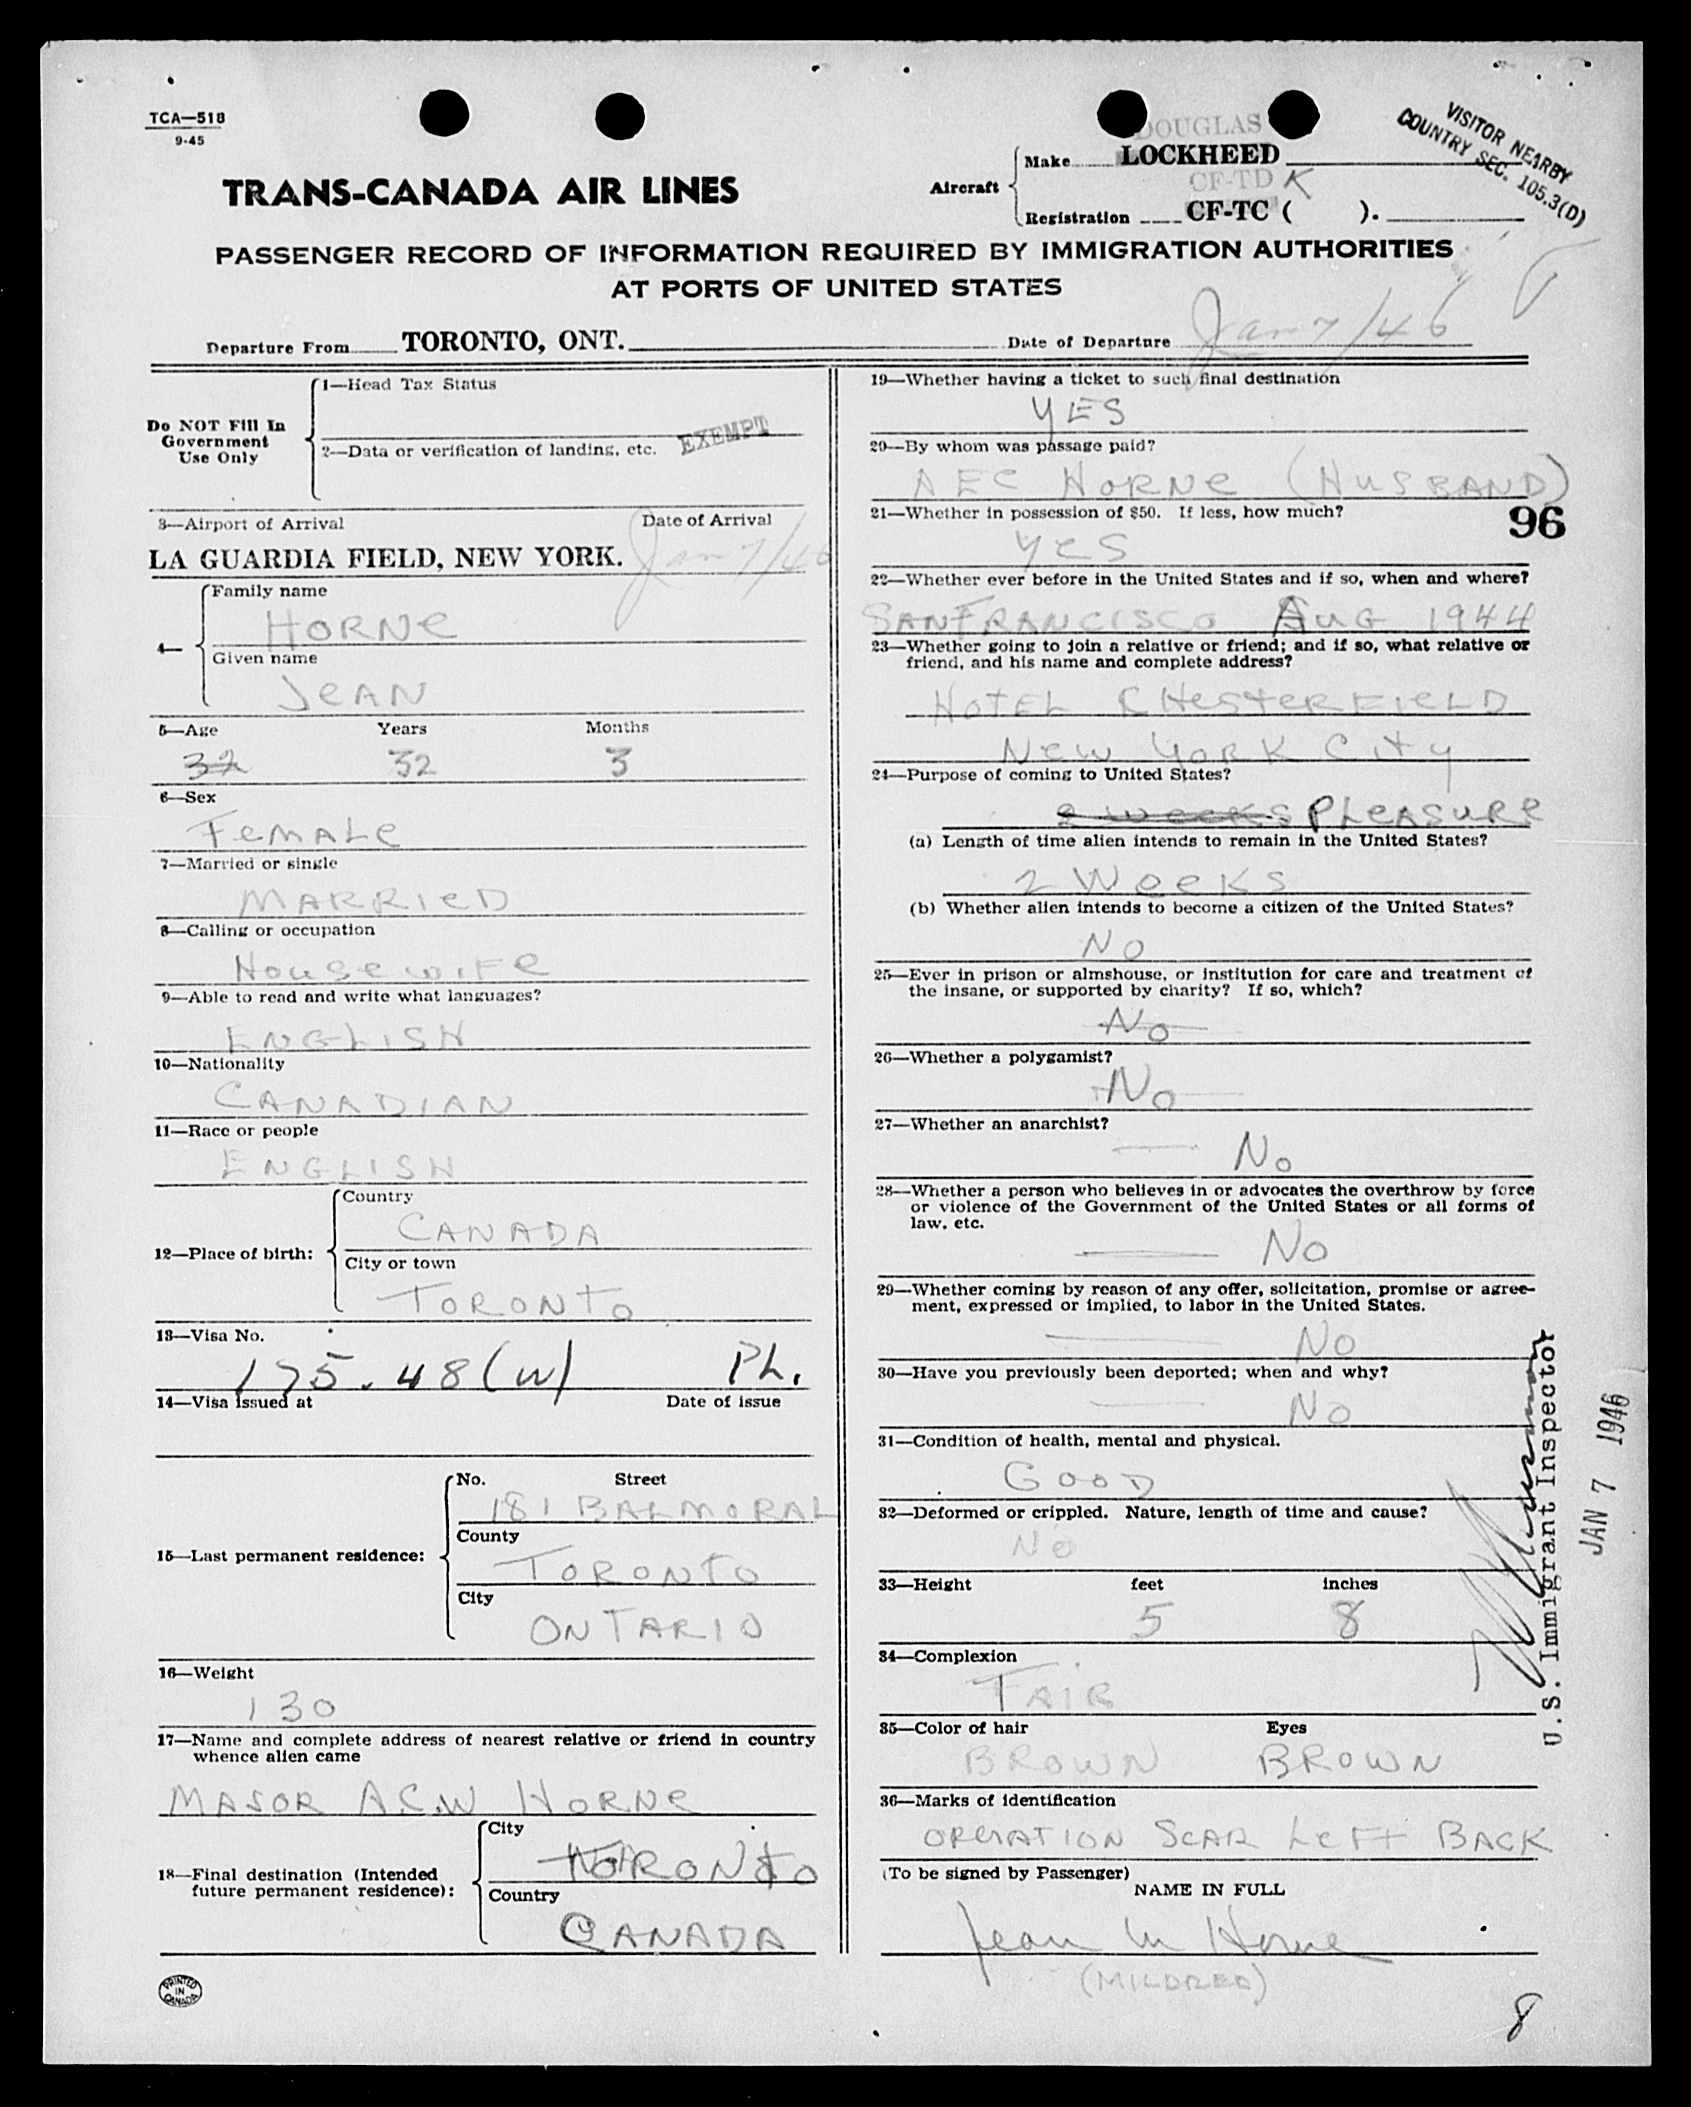 TCA—518
9-45
VISITOR NEARBY
COUNTRY SEC. 105.3(D)
DOUGLAS
Make LOCKHEED
CF-TD K
Aircraft
Registration CF-TC ( ).
TRANS-CANADA AIR LINES
PASSENGER RECORD OF INFORMATION REQUIRED BY IMMIGRATION AUTHORITIES
AT PORTS OF UNITED STATES
Departure From TORONTO, ONT.
Date of Departure Jan 7/46
Do NOT Fill In
Government
Use Only
1—Head Tax Status
EXEMPT
2—Data or verification of landing, etc.
3—Airport of Arrival Date of Arrival
LA GUARDIA FIELD, NEW YORK. Jan 7/46
4—
Family name
HORNE
Given name
JEAN
5—Age Years Months
32 32 3
6—Sex
FEMALE
7—Married or single
MARRIED
8—Calling or occupation
HOUSEWIFE
9—Able to read and write what languages?
ENGLISH
10—Nationality
CANADIAN
11—Race or people
ENGLISH
12—Place of birth:
Country
CANADA
City or town
TORONTO
13—Visa No.
175.48(W) Ph.
14—Visa issued at Date of issue
15—Last permanent residence:
No. Street
181 BALMORAL
County
TORONTO
City
ONTARIO
16—Weight
130
17—Name and complete address of nearest relative or friend in country
whence alien came
MAJOR A.C.W HORNE
18—Final destination (Intended
future permanent residence):
City
TORONTO
Country
CANADA
PRINTED
IN
CANADA
19—Whether having a ticket to such final destination
YES
20—By whom was passage paid?
AEC HORNE (HUSBAND)
21—Whether in possession of $50. If less, how much?
96
YES
22—Whether ever before in the United States and if so, when and where?
SAN FRANCISCO AUG 1944
23—Whether going to join a relative or friend; and if so, what relative or
friend, and his name and complete address?
HOTEL CHESTERFIELD
NEW YORK CITY
24—Purpose of coming to United States?
2 WEEKS PLEASURE
(a) Length of time alien intends to remain in the United States?
2 WEEKS
(b) Whether alien intends to become a citizen of the United States?
NO
25—Ever in prison or almshouse, or institution for care and treatment of
the insane, or supported by charity? If so, which?
NO
26—Whether a polygamist?
NO
27—Whether an anarchist?
NO
28—Whether a person who believes in or advocates the overthrow by force
or violence of the Government of the United States or all forms of
law, etc.
NO
29—Whether coming by reason of any offer, solicitation, promise or agree-
ment, expressed or implied, to labor in the United States.
NO
30—Have you previously been deported; when and why?
NO
31—Condition of health, mental and physical.
GOOD
32—Deformed or crippled. Nature, length of time and cause?
NO
33—Height feet inches
5 8
34—Complexion
FAIR
35—Color of hair Eyes
BROWN BROWN
36—Marks of identification
OPERATION SCAR LEFT BACK
(To be signed by Passenger)
NAME IN FULL
Jean M Horne
(MILDRED)
U.S. Immigrant Inspector
JAN 7 1946
8